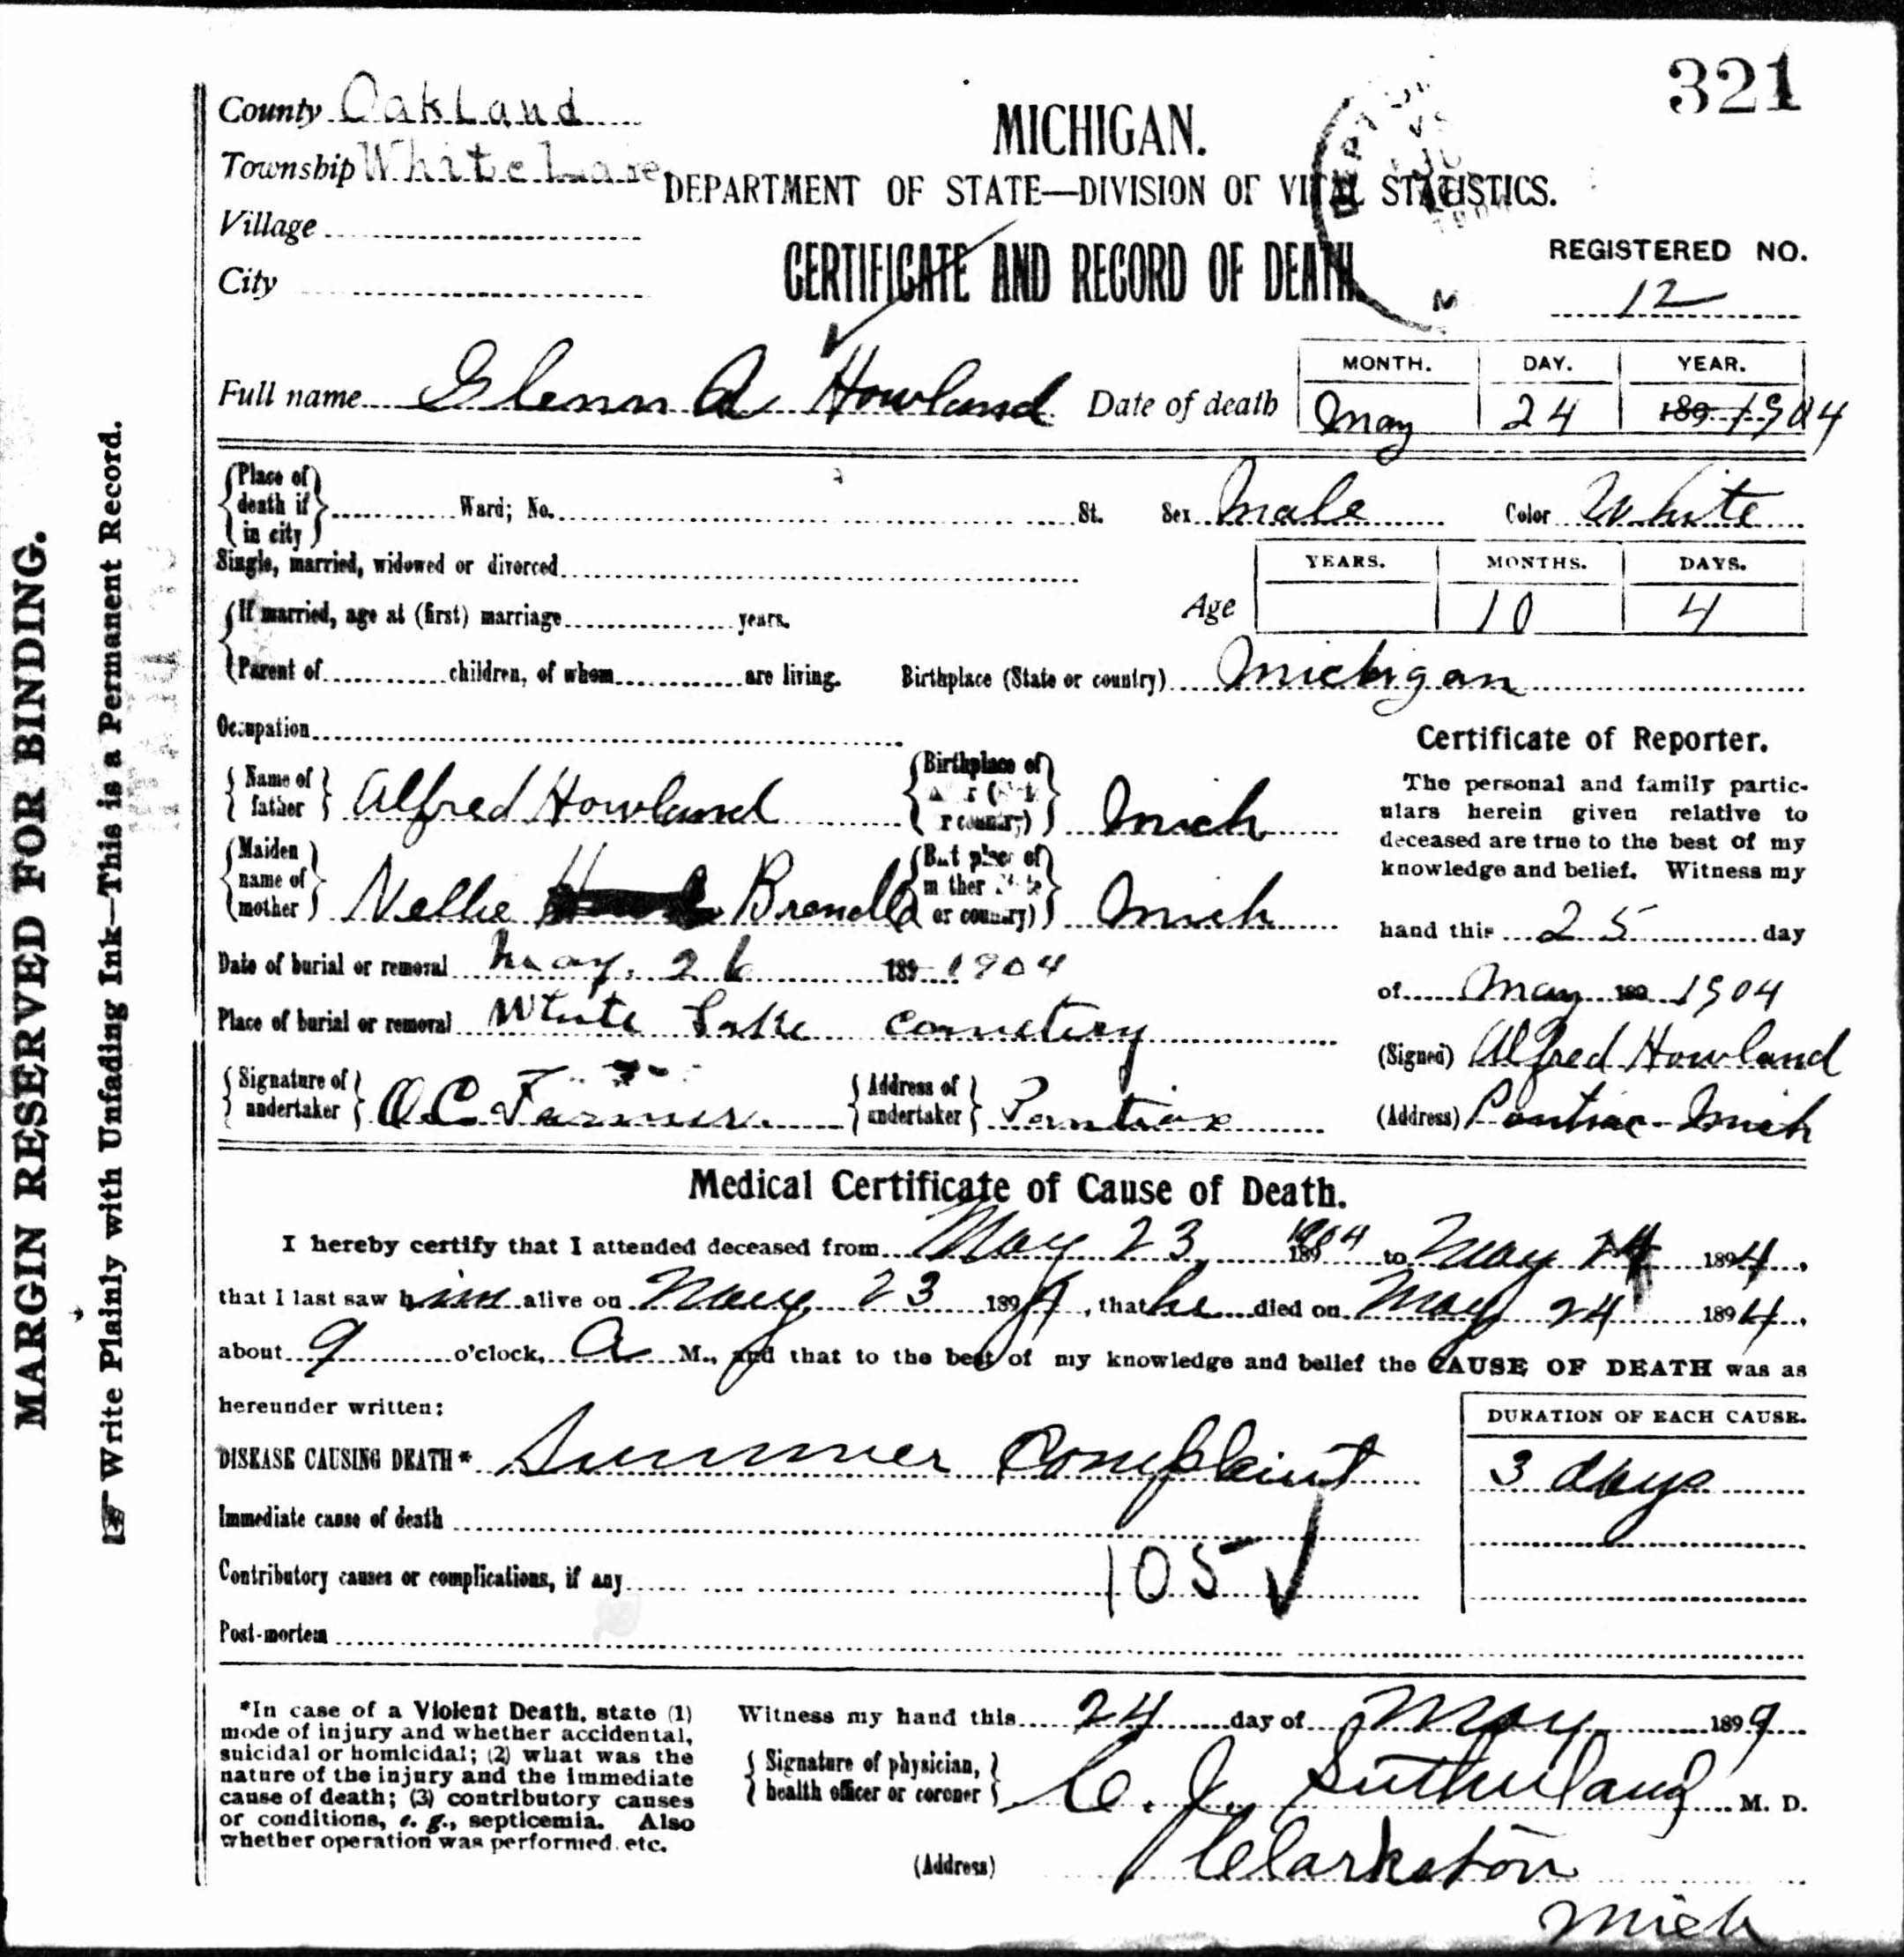 321
County Oakland
MICHIGAN.
Township White Lake
DEPARTMENT OF STATE—DIVISION OF VITAL STATISTICS.
Village
CERTIFICATE AND RECORD OF DEATH
REGISTERED NO.
City
12
MONTH. DAY. YEAR.
Full name Glenn A Howland Date of death May 24 189 1904
Place of death if in city Ward; No. St. Sex Male Color White
Single, married, widowed or divorced
YEARS. MONTHS. DAYS.
If married, age at (first) marriage years. Age 10 4
Parent of children, of whom are living. Birthplace (State or country) Michigan
Occupation
Certificate of Reporter.
Name of father Alfred Howland Birthplace of country) Mich
The personal and family partic-
ulars herein given relative to
deceased are true to the best of my
knowledge and belief. Witness my
Maiden name of mother Nellie or country) Mich
hand this 25 day
Date of burial or removal May. 26 189 1904
of May 189 1904
Place of burial or removal White Lake cemetery
(Signed) Alfred Howland
Signature of undertaker O.C. Farmer Address of undertaker Pontiac
(Address) Pontiac Mich
Medical Certificate of Cause of Death.
I hereby certify that I attended deceased from May 23 189 1904 to May 24 1894,
that I last saw him alive on May 23 189 , that he died on May 24 1894,
about 9 o'clock, A M., and that to the best of my knowledge and belief the CAUSE OF DEATH was as
hereunder written:
DURATION OF EACH CAUSE.
DISEASE CAUSING DEATH* Summer Complaint 3 days
Immediate cause of death
Contributory causes or complications, if any 105
Post-mortem
*In case of a Violent Death, state (1)
mode of injury and whether accidental,
suicidal or homicidal; (2) what was the
nature of the injury and the immediate
cause of death; (3) contributory causes
or conditions, e. g., septicemia. Also
whether operation was performed, etc.
Witness my hand this 24 day of May 189
Signature of physician, health officer or coroner C. J. Sutherland M. D.
(Address) Clarkston
Mich
MARGIN RESERVED FOR BINDING.
Write Plainly with Unfading Ink—This is a Permanent Record.